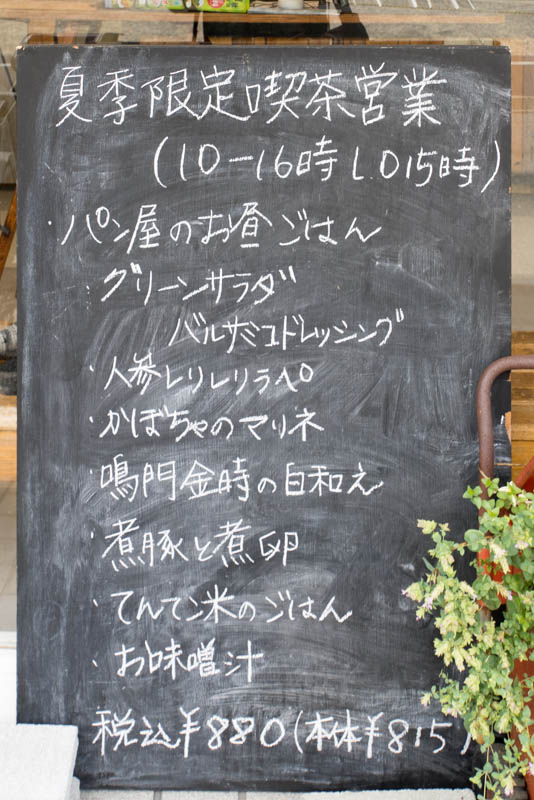 夏季限定喫茶営業
(10-16時 L.O15時)
・パン屋のお昼ごはん
・グリーンサラダ
バルサミコドレッシング
・人参しりしりラペ
・かぼちゃのマリネ
・鳴門金時の白和え
・煮豚と煮卵
・てんてン米のごはん
・お味噌汁
税込¥880(本体¥815)